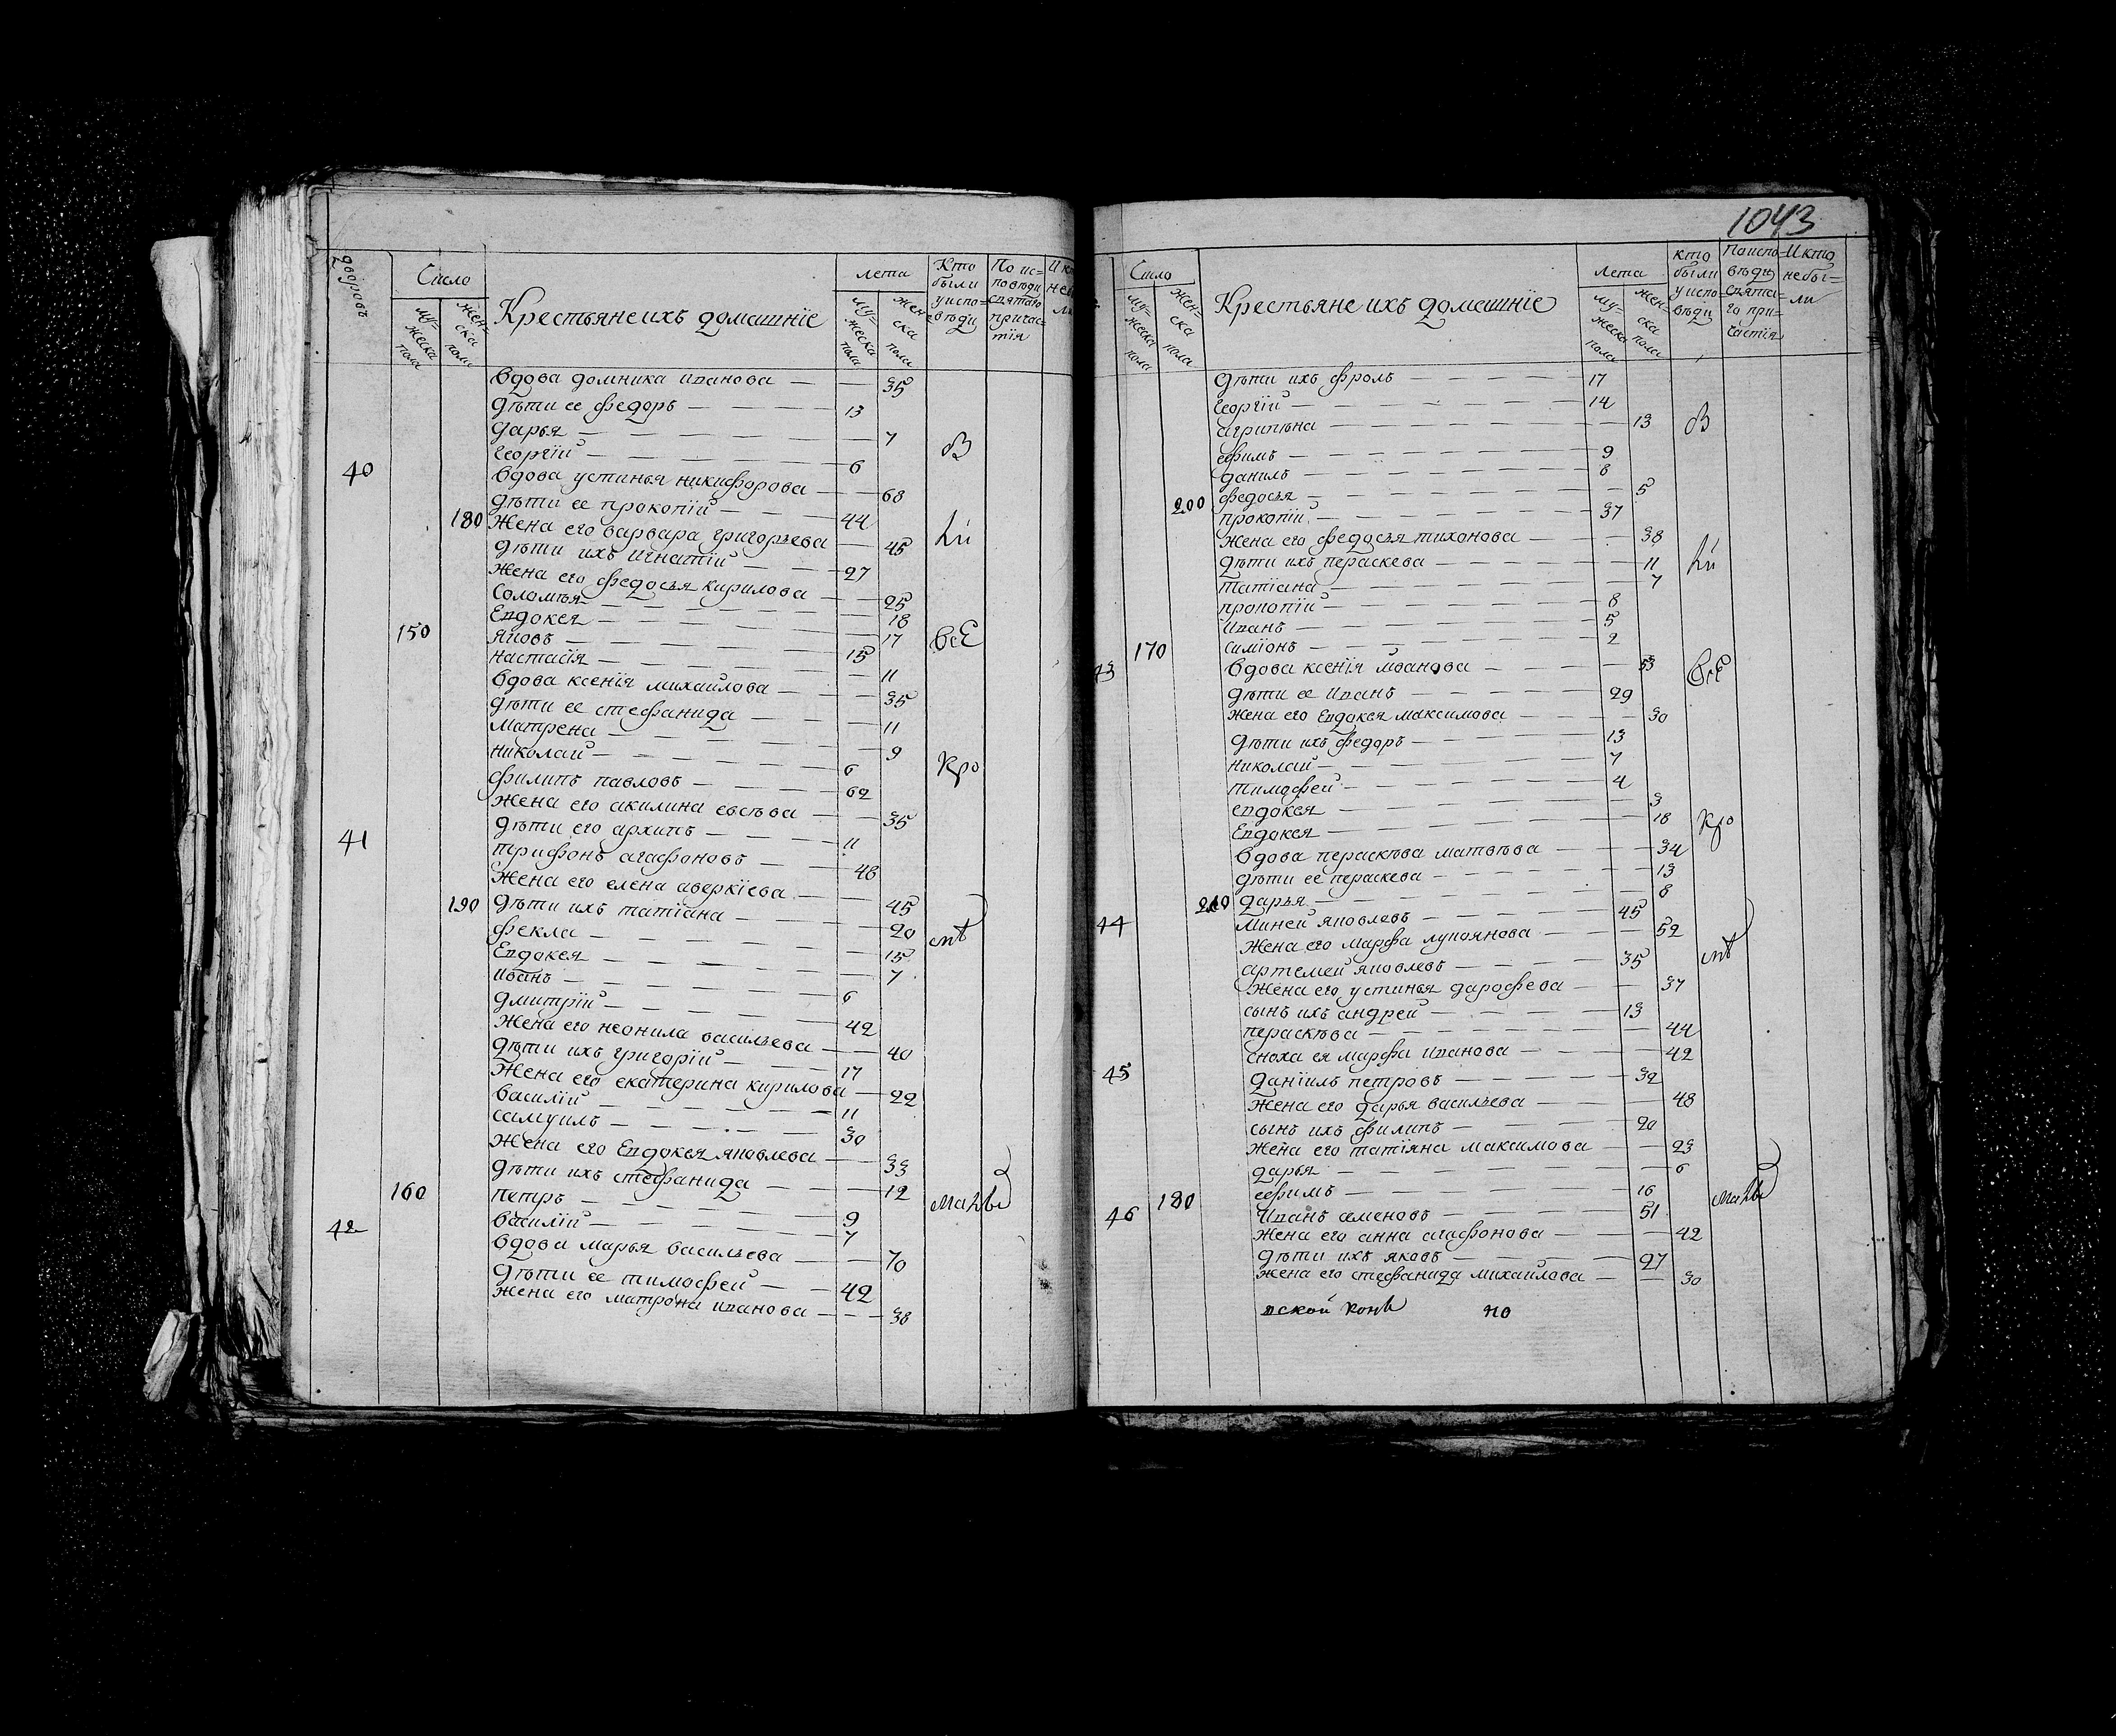 дворовъ
Число
Крестьяне ихъ домашнїе
лета
Кто были у исповѣди
По исповѣди святаго причастїя
И кто не бы
мужеска пола
женска пола
мужеска пола
женска пола
вдова домника иванова — — 35
дѣти ее федоръ — — 13
дарья — — 7
георгїй — — 6
40 вдова устинья никифорова — — 68
дѣти ее прокопїй — — 44
180 жена его варвара григорьева — 45
дѣти ихъ игнатїй — — 27
жена его федосья кирилова — — 25
Соломѣя — — 18
Евдокея — — 17
150 яковъ — — 15
настасїя — — 11
вдова ксенїя михайлова — — 35
дѣти ее стефанида — — 11
матрена — — 9
николай — — 6
филипъ павловъ — — 62
жена его акилина евсѣва — — 35
дѣти его архипъ — — 11
41 трифонъ агафоновъ — — 48
жена его елена аверкїева — — 45
190 дѣти ихъ татїана — — 20
фекла — — 15
Евдокея — — 7
иванъ — — 6
дмитрїй — — 42
жена его неонила васильева — — 40
дѣти ихъ григорїй — — 17
жена его екатерина кирилова — 22
василїй — — 11
самуилъ — — 30
жена его Евдокея яковлева — — 33
дѣти ихъ стефанида — — 12
160 петръ — — 9
василїй — — 7
42 вдова марья васильева — — 70
дѣти ее тимофей — — 42
жена его матрона иванова — — 38
всѣ
1043
Число
Крестьяне ихъ домашнїе
Лета
кто были у исповѣди
По исповѣди святаго причастїя
И кто не были
мужеска пола
женска пола
мужеска пола
женска пола
дѣти ихъ фролъ — — 17
георгїй — — 14
агрипѣна — — 13
ефимъ — — 9
данилъ — — 8
200 федосья — — 5
прокопїй — — 37
жена его федосья тихонова — — 38
дѣти ихъ пераскева — — 11
татїана — — 7
прокопїй — — 8
иванъ — — 5
170 симїонъ — — 2
43 вдова ксенїя иванова — — 53
дѣти ее иванъ — — 29
жена его Евдокея максимова — — 30
дѣти ихъ федоръ — — 13
николай — — 7
тимофей — — 4
евдокея — — 3
Евдокея — — 18
вдова пераскѣва матвѣва — — 34
дѣти ее пераскева — — 13
210 дарья — — 8
44 миней яковлевъ — — 45
жена его марфа лукоянова — — 52
артемей яковлевъ — — 35
жена его устинья дарофева — — 37
сынъ ихъ андрей — — 13
пераскѣва — — 44
сноха ея марфа иванова — — 42
45 данїилъ петровъ — — 32
жена его дарья васильева — — 48
сынъ ихъ филипъ — — 20
жена его татїяна максимова — — 23
дарья — — 6
180 ефимъ — — 16
46 Иванъ семеновъ — — 51
жена его анна агафонова — — 42
дѣти ихъ яковъ — — 27
жена его стефанида михайлова — — 30